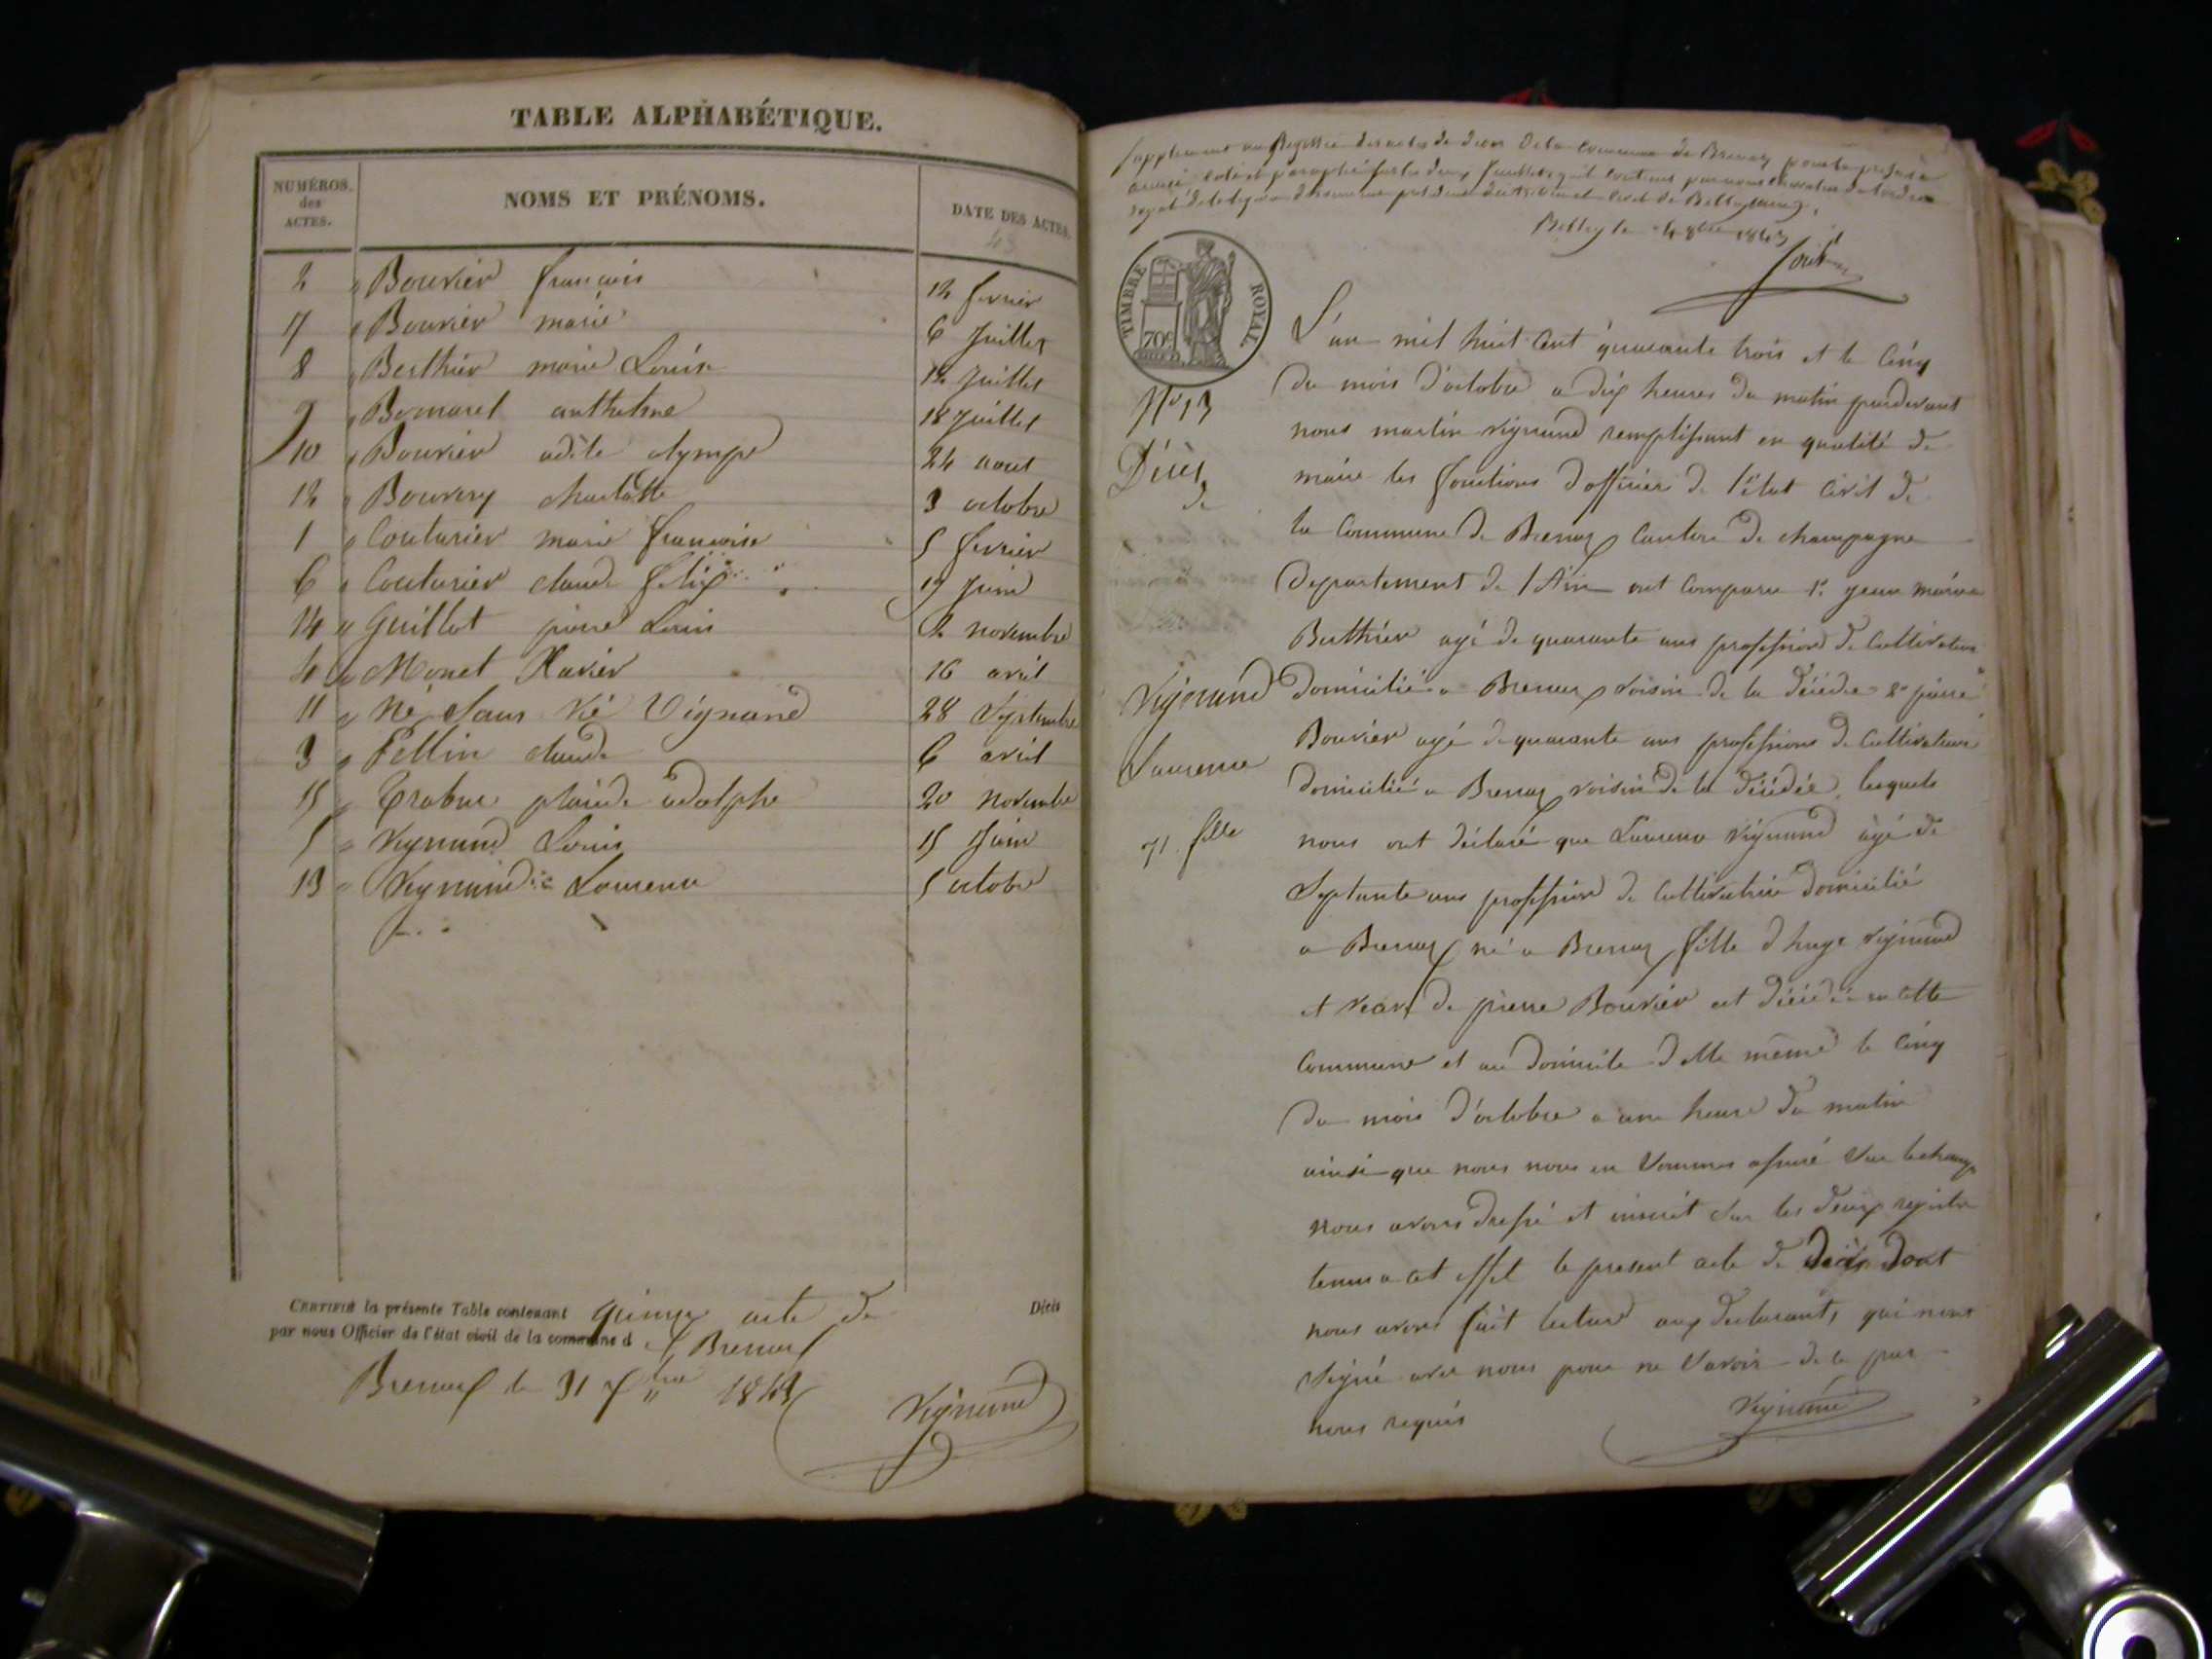 TABLE ALPHABÉTIQUE.
NUMÉROS des ACTES. NOMS ET PRÉNOMS. DATE DES ACTES.
2 " Bouvier françois 12 fevrier
7 " Bouvier marie 6 Juillet
8 " Berthier marie Louise 12 Juillet
9 " Bornarel anthelme 18 Juillet
10 " Bouvier adèle olympe 24 aout
12 " Bouvery charlotte 3 octobre
1 " Couturier marie françoise 5 fevrier
6 " Couturier claude felix 19 Juin
14 " Guillot pierre Louis 2 novembre
4 " Monet Xavier 16 avril
11 " Né Sans Vie Vignand 28 Septembre
3 " Pellin claude 6 avril
15 " Trabuc placide adolphe 20 novembre
5 " Vignand Louis 15 Juin
13 " Vignand Laurence 5 octobre
CERTIFIÉ la présente Table contenant quinze acte de Décès
par nous Officier de l'état civil de la commune d Brenaz
Brenaz le 31 1843
Vignand
Supplement au Registre des actes de deces de la commune de Brenaz pour la presente
année, coté et paraphé sur les deux feuillets qu'il contient par nous chevalier de l'ordre
royal de la légion d'honneur president du tribunal civil de Belley
Belley le 4 8bre 1843
TIMBRE ROYAL
70c
L'an mil huit cent quarante trois et le cinq
du mois d'octobre a dix heures du matin pardevant
No 13
nous martin vignand remplissant en qualité de
Décès
maire les fonctions d'officier de l'état civil de
de
la commune de Brenaz canton de champagne
Departement de l'Ain ont comparu 1° jean marie
Berthier agé de quarante ans profession de cultivateur
Vignand
domicilié a Brenaz voisin de la décédée 2° pierre
Bouvier agé de quarante ans profession de cultivateur
Laurence
domicilié a Brenaz voisin de la décédée lesquels
71 fille
nous ont déclaré que Laurence Vignand agé de
Septante ans profession de cultivatrice domicilié
a Brenaz né a Brenaz fille d huge vignand
et veuve de pierre Bouvier est décédée en cette
commune et au domicile d elle même le cinq
du mois d'octobre a une heure du matin
ainsi que nous nous en Sommes assuré Sur le champ
nous avons dressé et inscrit sur les deux registre
tenus a cet effet le present acte de décès dont
nous avons fait lecture aux declarants, qui n'ont
Signé avec nous pour ne Savoir de ce par
nous requis
Vignand